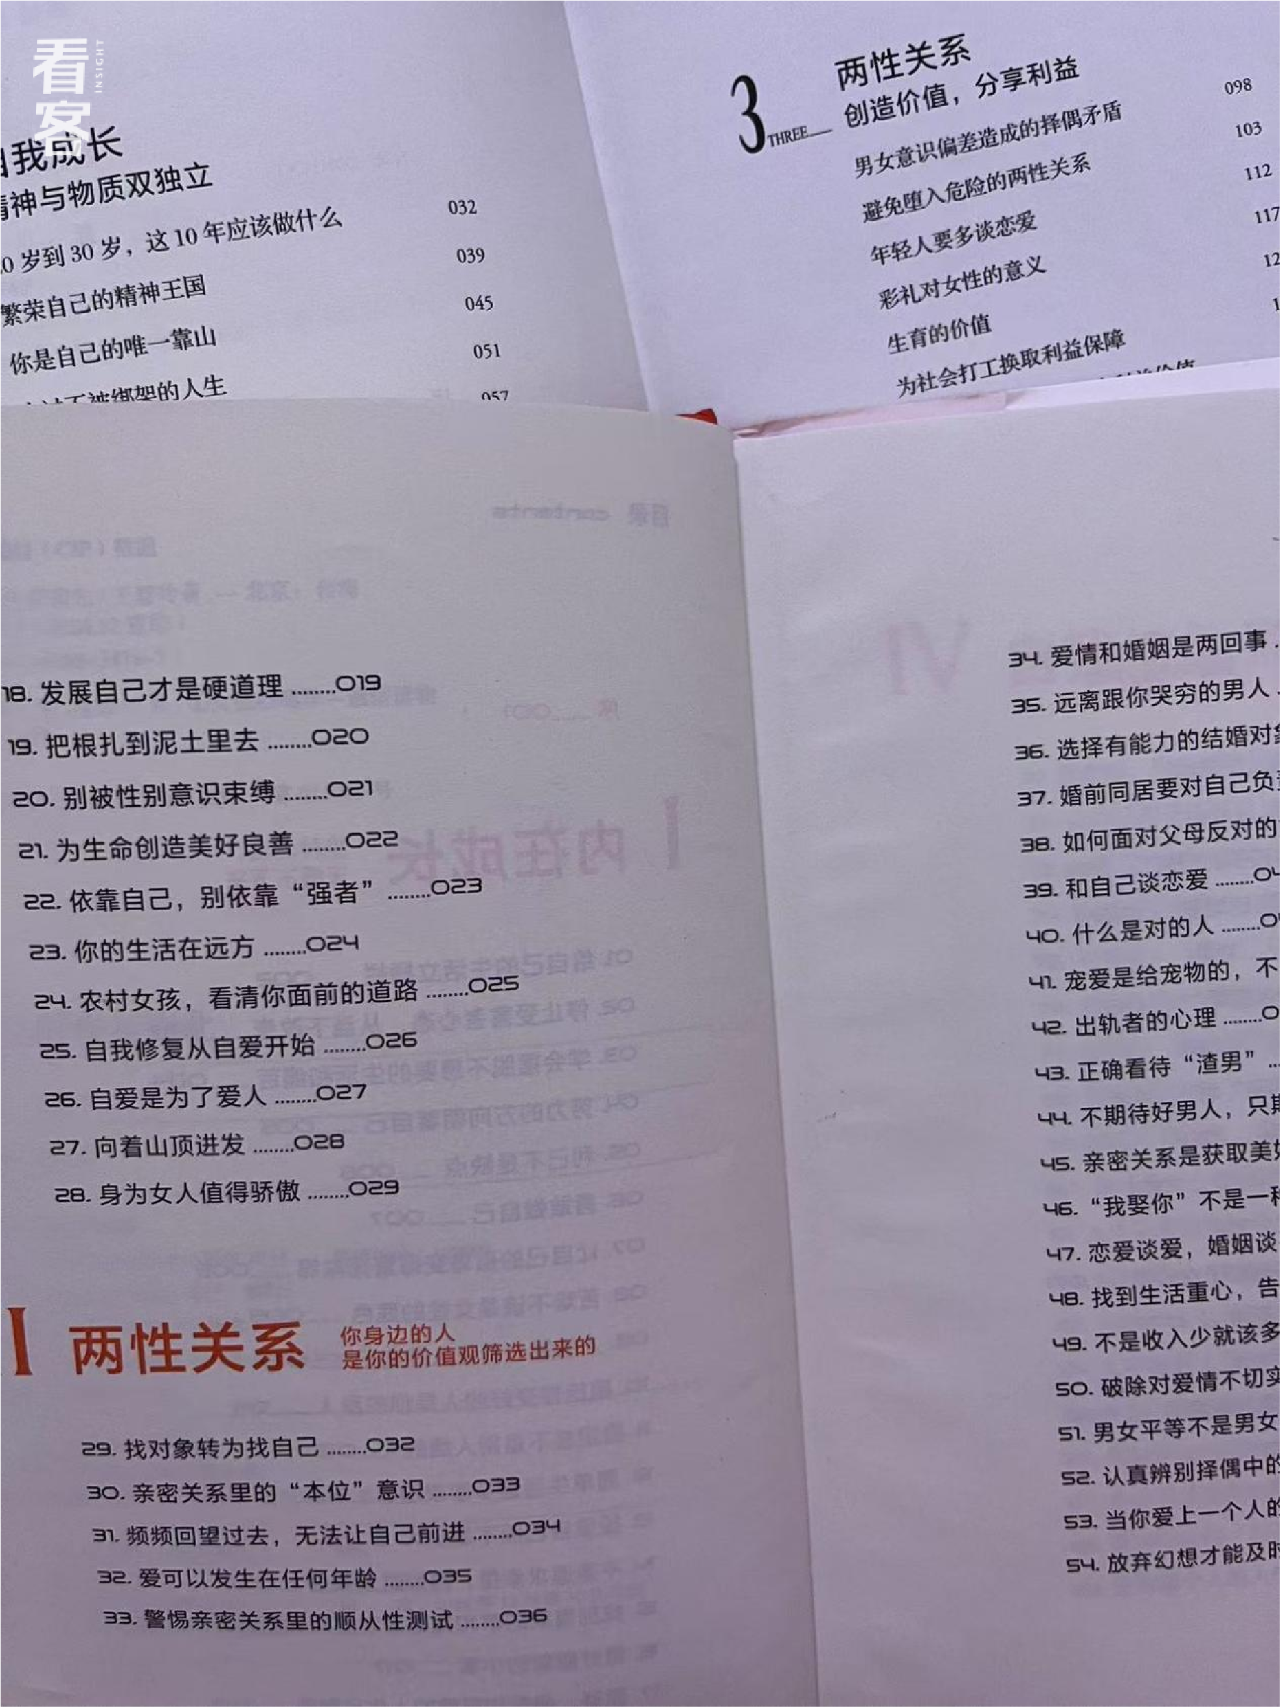 看客
INSIGHT
自我成长
精神与物质双独立
0 岁到 30 岁，这 10 年应该做什么 032
繁荣自己的精神王国 039
你是自己的唯一靠山 045
不被绑架的人生 051
057
3
THREE
两性关系
创造价值，分享利益
男女意识偏差造成的择偶矛盾 098
避免堕入危险的两性关系 103
年轻人要多谈恋爱 112
彩礼对女性的意义 117
生育的价值 12
为社会打工换取利益保障 1
18. 发展自己才是硬道理 ........019
19. 把根扎到泥土里去 ........020
20. 别被性别意识束缚 ........021
21. 为生命创造美好良善 ........022
22. 依靠自己，别依靠“强者” ........023
23. 你的生活在远方 ........024
24. 农村女孩，看清你面前的道路 ........025
25. 自我修复从自爱开始 ........026
26. 自爱是为了爱人 ........027
27. 向着山顶进发 ........028
28. 身为女人值得骄傲 ........029
I 两性关系
你身边的人
是你的价值观筛选出来的
29. 找对象转为找自己 ........032
30. 亲密关系里的“本位”意识 ........033
31. 频频回望过去，无法让自己前进 ........034
32. 爱可以发生在任何年龄 ........035
33. 警惕亲密关系里的顺从性测试 ........036
34. 爱情和婚姻是两回事
35. 远离跟你哭穷的男人
36. 选择有能力的结婚对象
37. 婚前同居要对自己负责
38. 如何面对父母反对的
39. 和自己谈恋爱 ........04
40. 什么是对的人 ........0
41. 宠爱是给宠物的，不
42. 出轨者的心理 ........0
43. 正确看待“渣男”
44. 不期待好男人，只期
45. 亲密关系是获取美好
46. “我娶你”不是一种
47. 恋爱谈爱，婚姻谈
48. 找到生活重心，告
49. 不是收入少就该多
50. 破除对爱情不切实
51. 男女平等不是男女
52. 认真辨别择偶中的
53. 当你爱上一个人的
54. 放弃幻想才能及时